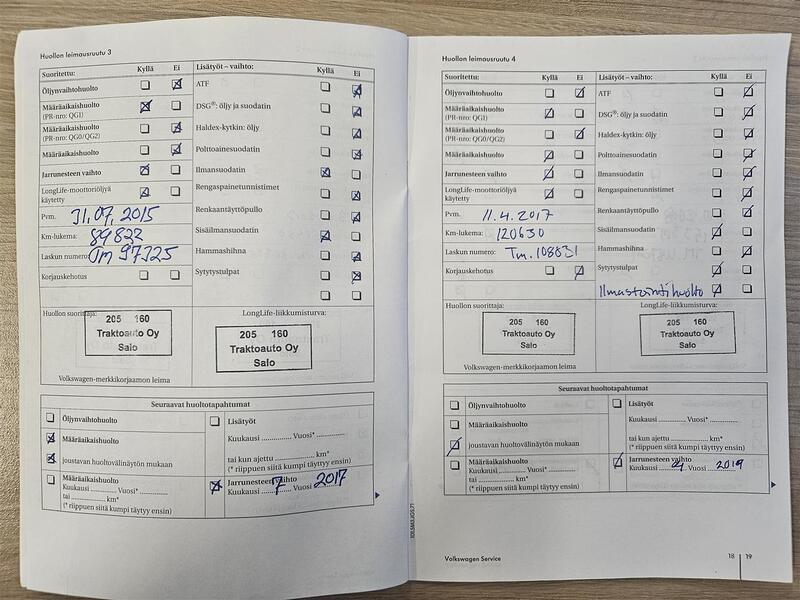 Huollon leimausruutu 3
Suoritettu: Kyllä Ei
Öljynvaihtohuolto
Määräaikaishuolto
(PR-nro: QG1)
Määräaikaishuolto
(PR-nro: QG0/QG2)
Määräaikaishuolto
Jarrunesteen vaihto
LongLife-moottoriöljyä
käytetty
Pvm. 31,07,2015
Km-lukema: 89822
Laskun numero: Tm 97325
Korjauskehotus
Lisätyöt – vaihto: Kyllä Ei
ATF
DSG®: öljy ja suodatin
Haldex-kytkin: öljy
Polttoainesuodatin
Ilmansuodatin
Rengaspainetunnistimet
Renkaantäyttöpullo
Sisäilmansuodatin
Hammashihna
Sytytystulpat
Huollon suorittaja:
205 160
Traktoauto Oy
Salo
Volkswagen-merkkikorjaamon leima
LongLife-liikkumisturva:
205 160
Traktoauto Oy
Salo
Seuraavat huoltotapahtumat
Öljynvaihtohuolto
Määräaikaishuolto
joustavan huoltovälinäytön mukaan
Määräaikaishuolto
Kuukausi ............. Vuosi* .............
tai ............. km*
(* riippuen siitä kumpi täytyy ensin)
Lisätyöt
Kuukausi ............. Vuosi* .............
tai kun ajettu ............. km*
(* riippuen siitä kumpi täytyy ensin)
Jarrunesteen vaihto
Kuukausi 7 Vuosi 2017
Huollon leimausruutu 4
Suoritettu: Kyllä Ei
Öljynvaihtohuolto
Määräaikaishuolto
(PR-nro: QG1)
Määräaikaishuolto
(PR-nro: QG0/QG2)
Määräaikaishuolto
Jarrunesteen vaihto
LongLife-moottoriöljyä
käytetty
Pvm. 11.4.2017
Km-lukema: 120630
Laskun numero: Tm. 108831
Korjauskehotus
Lisätyöt – vaihto: Kyllä Ei
ATF
DSG®: öljy ja suodatin
Haldex-kytkin: öljy
Polttoainesuodatin
Ilmansuodatin
Rengaspainetunnistimet
Renkaantäyttöpullo
Sisäilmansuodatin
Hammashihna
Sytytystulpat
Ilmastointihuolto
Huollon suorittaja:
205 160
Traktoauto Oy
Salo
Volkswagen-merkkikorjaamon leima
LongLife-liikkumisturva:
205 160
Traktoauto Oy
Salo
Seuraavat huoltotapahtumat
Öljynvaihtohuolto
Määräaikaishuolto
joustavan huoltovälinäytön mukaan
Määräaikaishuolto
Kuukausi ............. Vuosi* .............
tai ............. km*
(* riippuen siitä kumpi täytyy ensin)
Lisätyöt
Kuukausi ............. Vuosi* .............
tai kun ajettu ............. km*
(* riippuen siitä kumpi täytyy ensin)
Jarrunesteen vaihto
Kuukausi 4 Vuosi 2019
Volkswagen Service
18 19